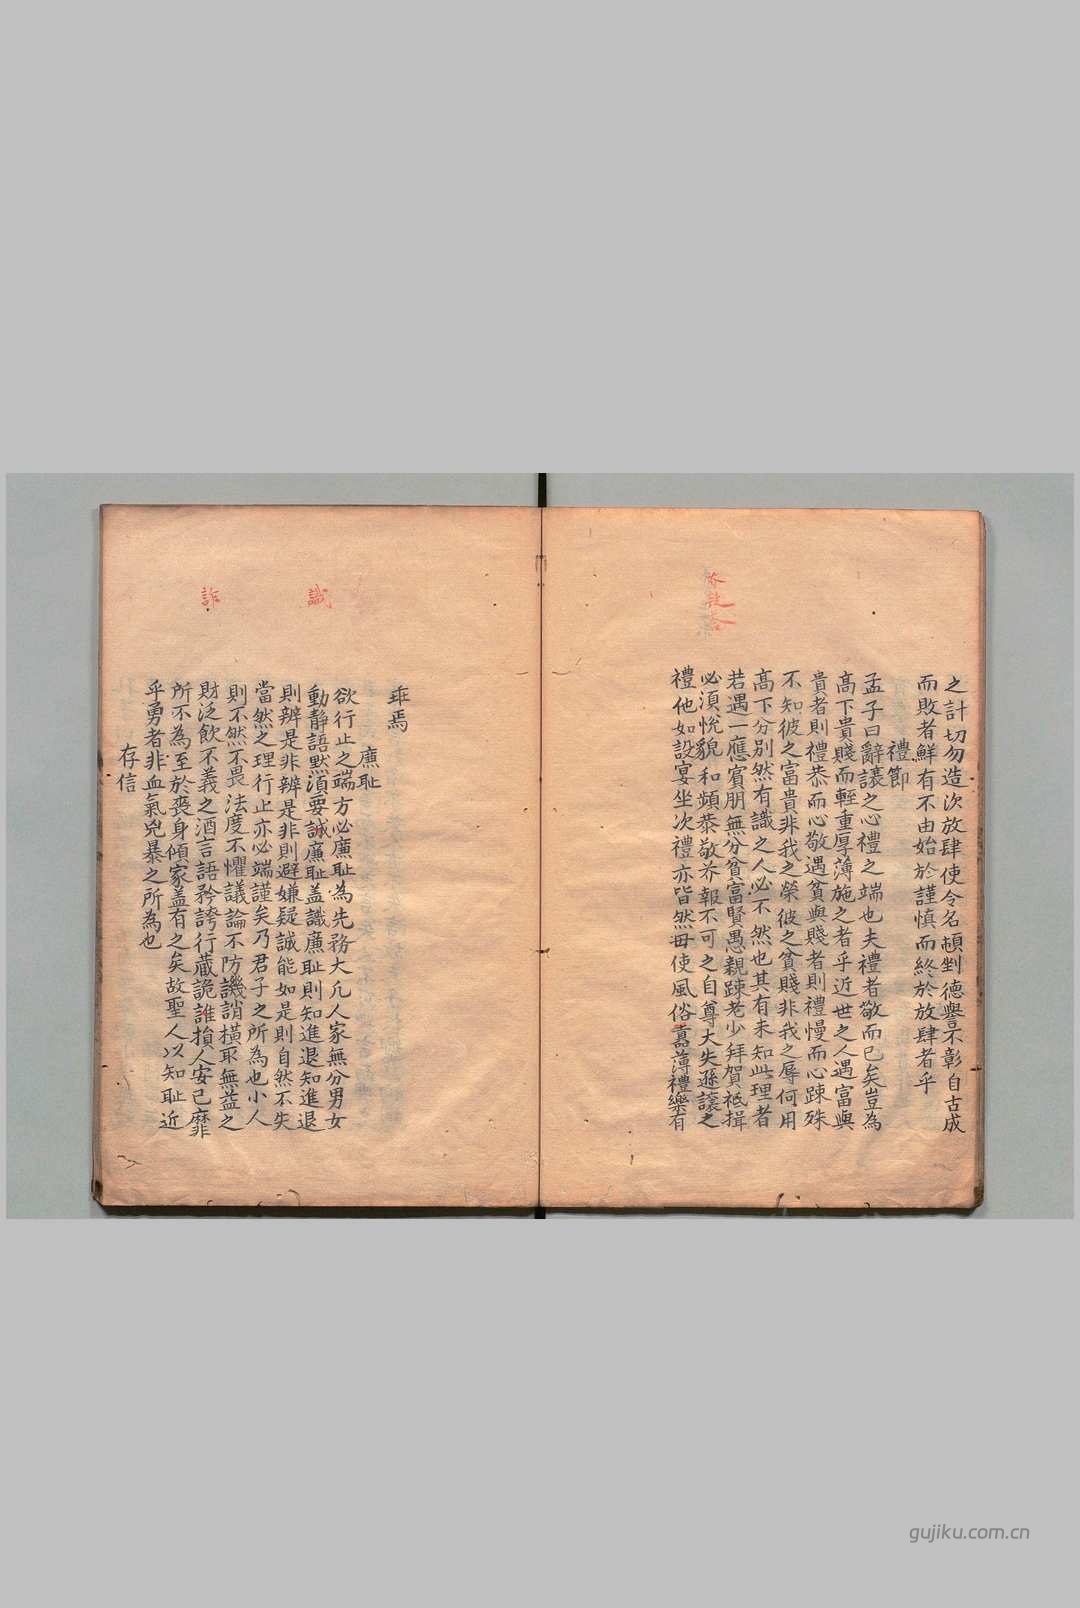 之計切勿造次放肆使令名頓剉德譽不彰自古成
而敗者鮮有不由始於謹慎而終於放肆者乎
禮節
孟子曰辭讓之心禮之端也夫禮者敬而已矣豈為
高下貴賤而輕重厚薄施之者乎近世之人遇富與
貴者則禮恭而心敬遇貧與賤者則禮慢而心踈殊
不知彼之富貴非我之榮彼之貧賤非我之辱何用
高下分別然有識之人必不然也其有未知此理者
若遇一應賓朋無分貧富賢愚親踈老少拜賀祗揖
必須悅貌和頻恭敬荅報不可之自尊大失遜讓之
禮他如設宴坐次禮亦皆然毋使風俗囂薄禮樂有
乖焉
廉耻
欲行止之端方必廉耻為先務大凢人家無分男女
動靜語默湏要誠廉耻盖識廉耻則知進退知進退
則辨是非辨是非則避嫌疑誠能如是則自然不失
當然之理行止亦必端謹矣乃君子之所為也小人
則不然不畏法度不懼議論不防譏誚橫取無益之
財泛飲不義之酒言語矜誇行蔵詭誰損人安己靡
所不為至於喪身傾家盖有之矣故聖人以知耻近
乎勇者非血氣兇暴之所為也
存信
識
詐
gujiku.com.cn